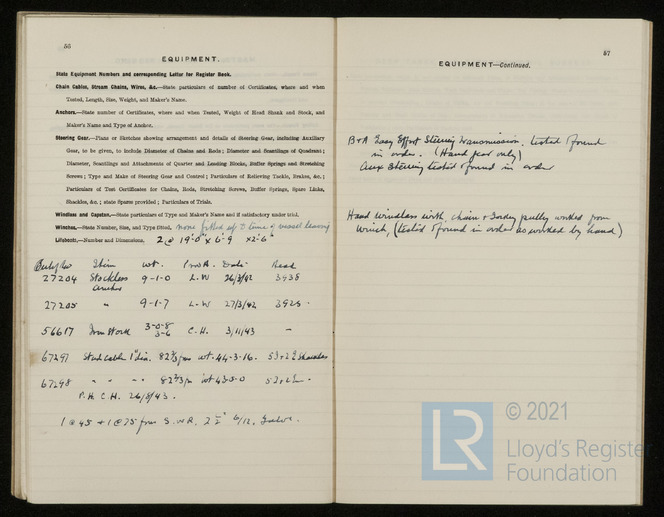 56
EQUIPMENT.
State Equipment Numbers and corresponding Letter for Register Book.
Chain Cables, Stream Chains, Wires, &c.—State particulars of number of Certificates, where and when
Tested, Length, Size, Weight, and Maker's Name.
Anchors.—State number of Certificates, where and when Tested, Weight of Head Shank and Stock, and
Maker's Name and Type of Anchor.
Steering Gear.—Plans or Sketches showing arrangement and details of Steering Gear, including Auxiliary
Gear, to be given, to include Diameter of Chains and Rods; Diameter and Scantlings of Quadrant;
Diameter, Scantlings and Attachments of Quarter and Leading Blocks, Buffer Springs and Stretching
Screws; Type and Make of Steering Gear and Control; Particulars of Relieving Tackle, Brakes, &c.;
Particulars of Test Certificates for Chains, Rods, Stretching Screws, Buffer Springs, Spare Links,
Shackles, &c.; state Spares provided; Particulars of Trials.
Windlass and Capstan.—State particulars of Type and Maker's Name and if satisfactory under trial.
Winches.—State Number, Size, and Type fitted, none fitted up to time of vessel leaving
Lifeboats.—Number and Dimensions, 2 @ 19'-0" x 6'-9 x 2'-6"
Item wt. Date Head
27204 Stockless 9-1-0 L-W 26/3/42 3938
anchor
27205 " 9-1-7 L-W 27/3/42 3925.
56617 Iron Stock 3-0-8 C.H. 3/11/43 —
3-6
67297 Stud cable 1" dia. 82½ fms wt. 44-3-16. 53+2½ Shackles
67298 " " " 82½ fm wt 43-5-0 53+2½ .
P.H. C.H. 26/8/43.
1 @ 45 + 1 @ 75 fms S.W.R. 2½" 6/12. Galv.
57
EQUIPMENT—Continued.
B+A Easy Effort Steering transmission. tested & found
in order. (Hand gear only)
Aux Steering tested & found in order
Hand windlass with chain & pulley worked from
winch, (tested & found in order as worked by hand)
LR
© 2021
Lloyd's Register
Foundation